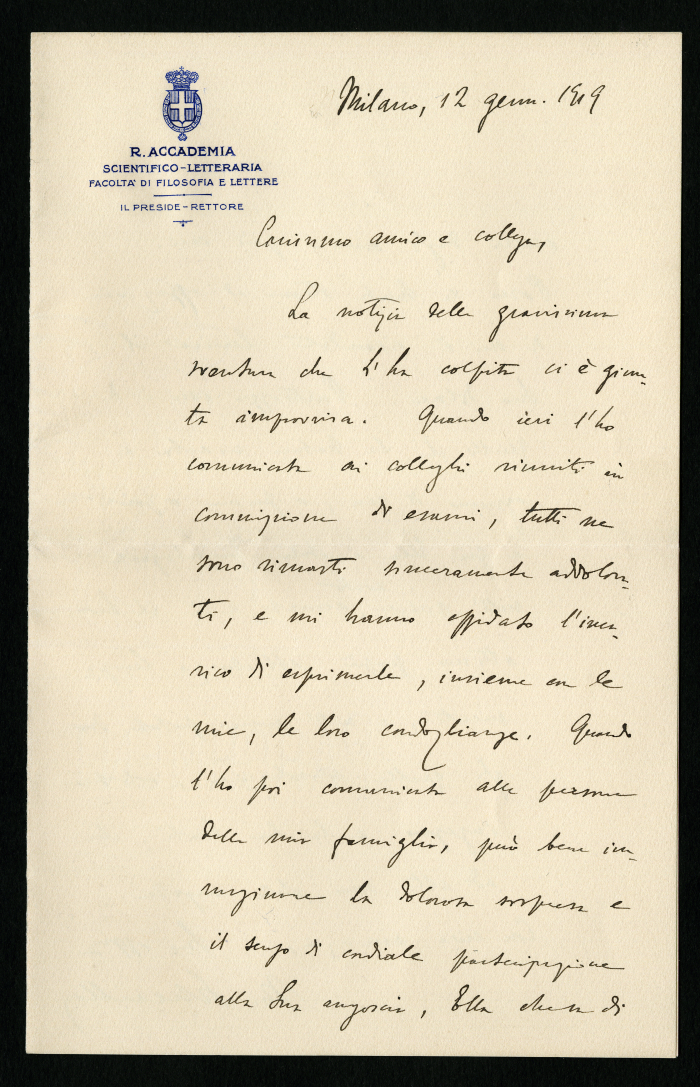 Milano, 12 genn. 1919
R. ACCADEMIA
SCIENTIFICO-LETTERARIA
FACOLTA' DI FILOSOFIA E LETTERE
IL PRESIDE-RETTORE
Carissimo amico e collega,
La notizia della gravissima
sventura che L'ha colpita ci è giun-
ta improvvisa. Quando ieri l'ho
comunicata ai colleghi riuniti in
commissione di esami, tutti ne
sono rimasti sinceramente addolora-
ti, e mi hanno affidato l'inca-
rico di esprimerle, insieme con le
mie, le loro condoglianze. Quando
l'ho poi comunicata alle persone
della mia famiglia, può bene im-
maginare la dolorosa sorpresa e
il senso di cordiale partecipazione
alla Sua angoscia, Ella che sa di